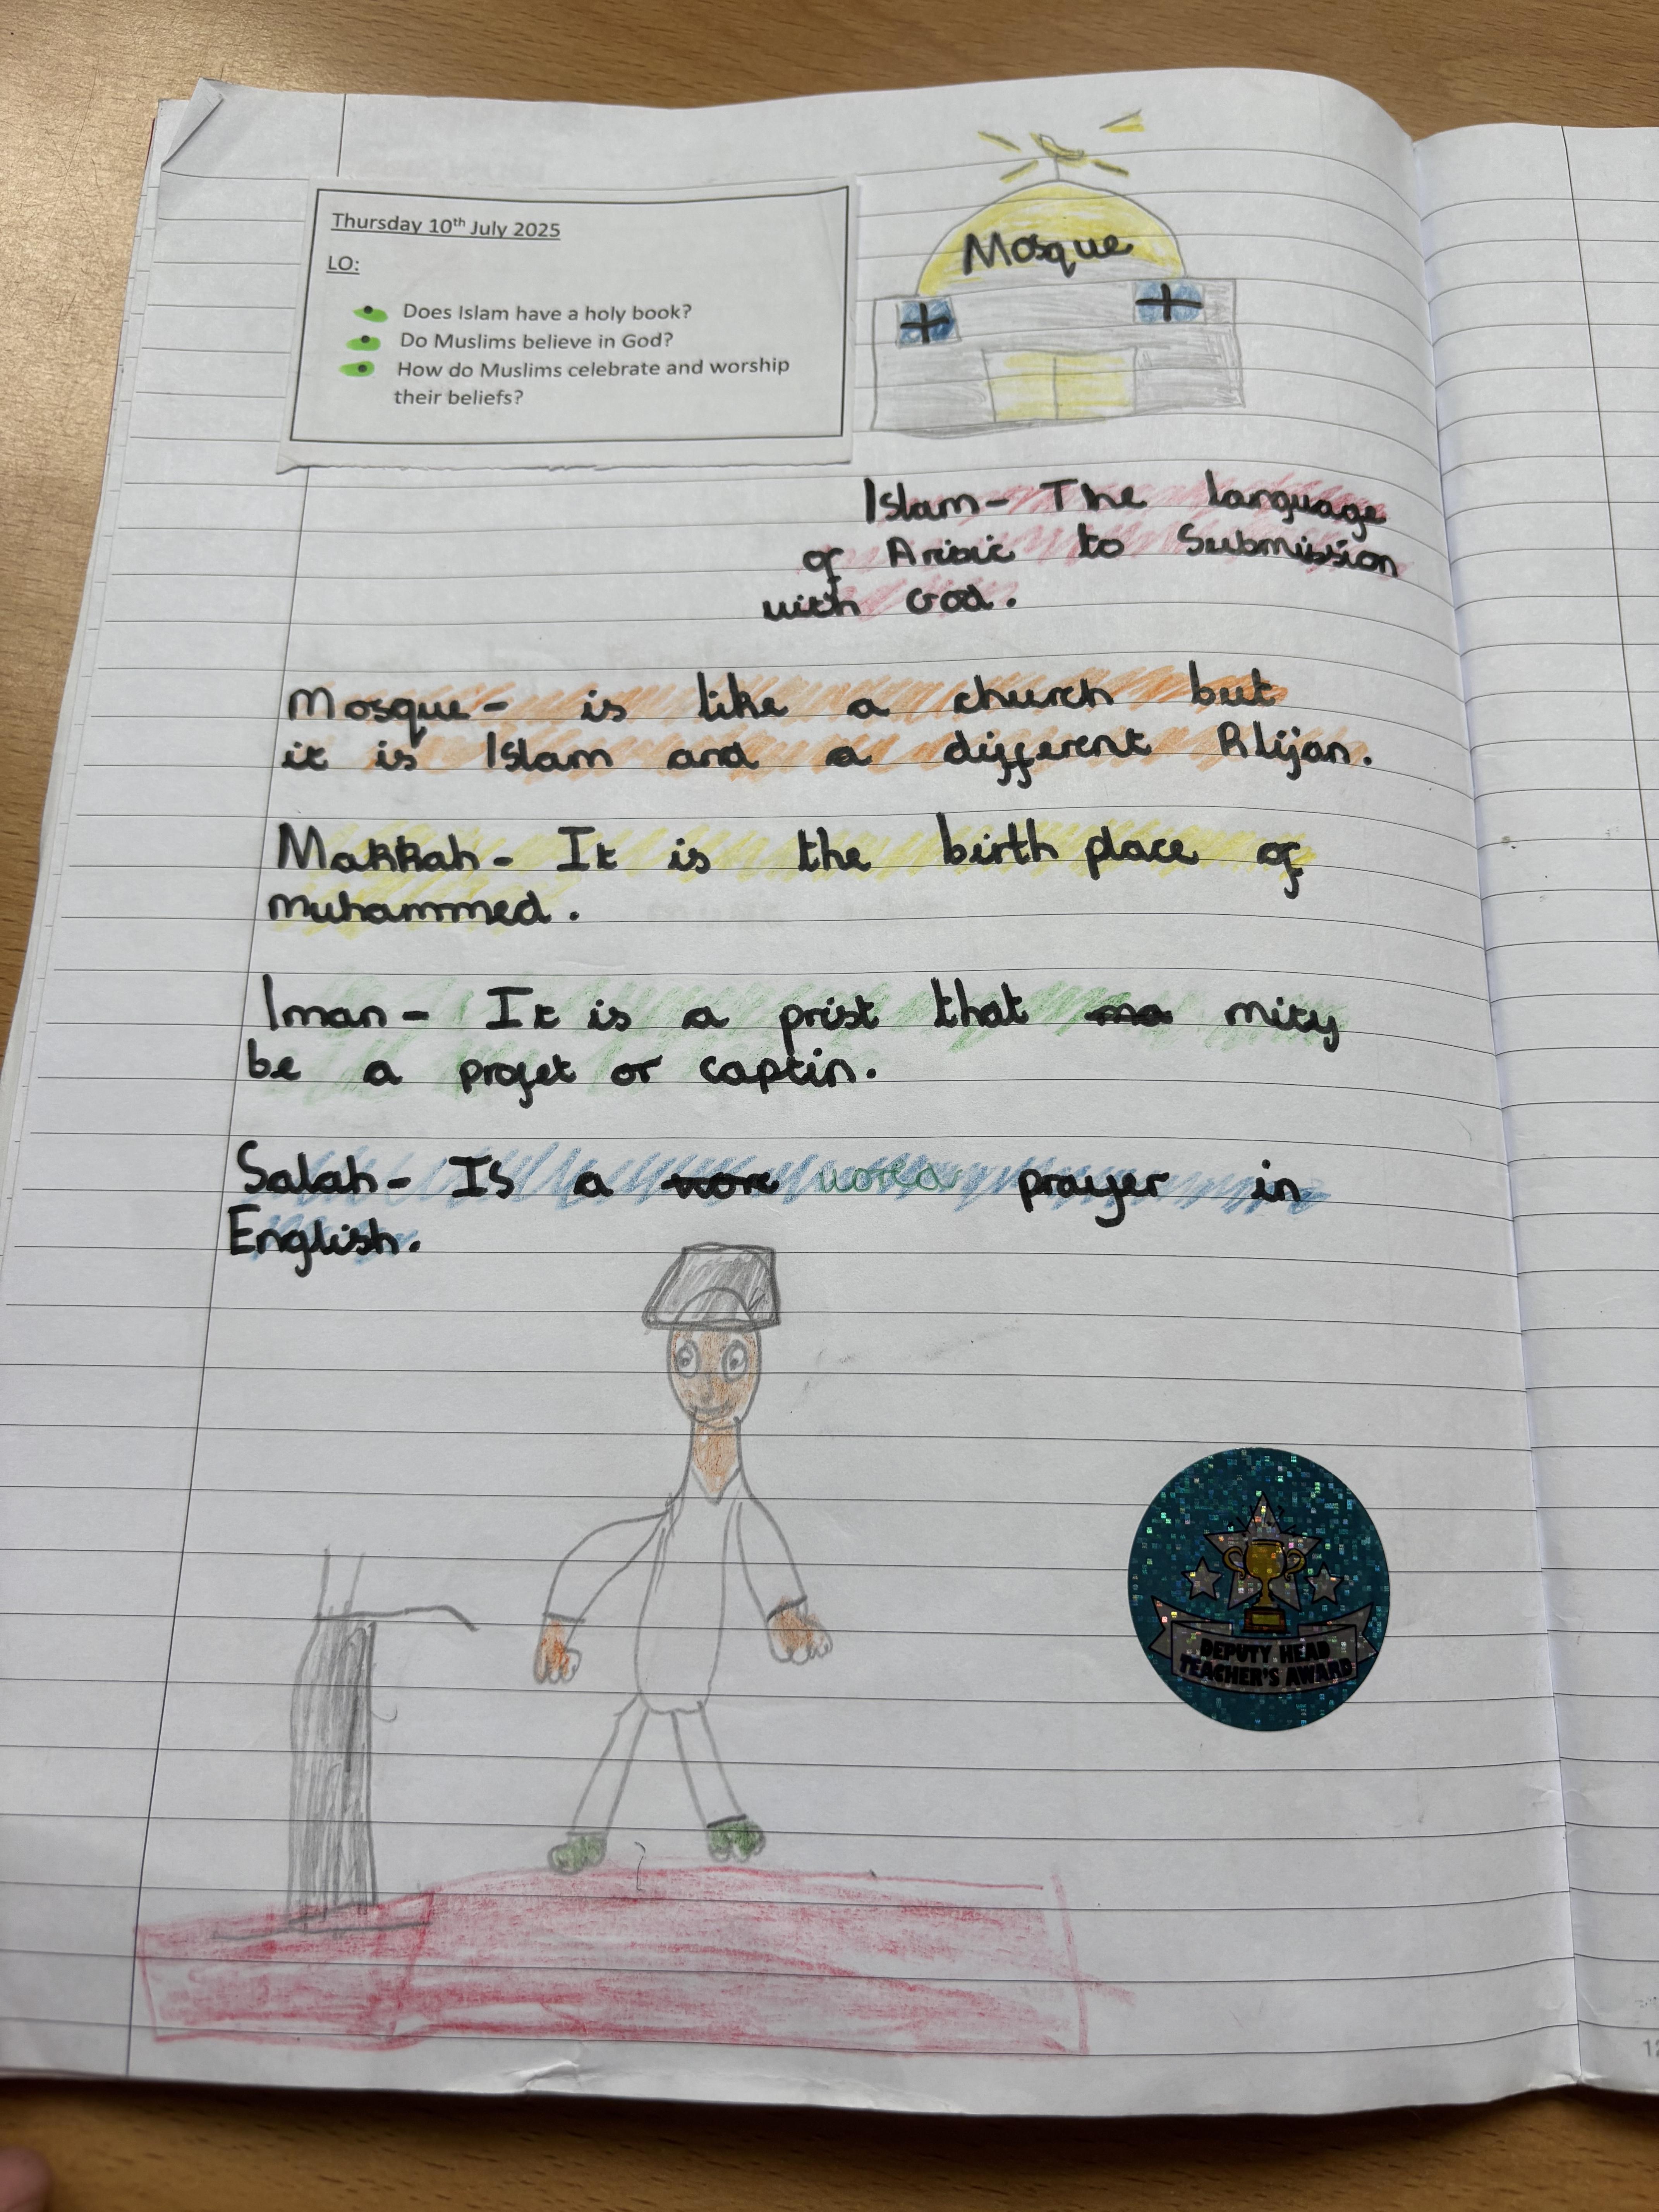 Thursday 10th July 2025
LO:
Does Islam have a holy book?
Do Muslims believe in God?
How do Muslims celebrate and worship
their beliefs?
Mosque
Islam- The language
of Aribic to Submission
with God.
Mosque- is like a church but
it is Islam and a different Rlijan.
Makkah- It is the birth place of
muhammed.
Iman- It is a prist that mity
be a profet or captin.
Salah- IS a prayer in
English.
DEPUTY HEAD
TEACHER'S AWARD
12